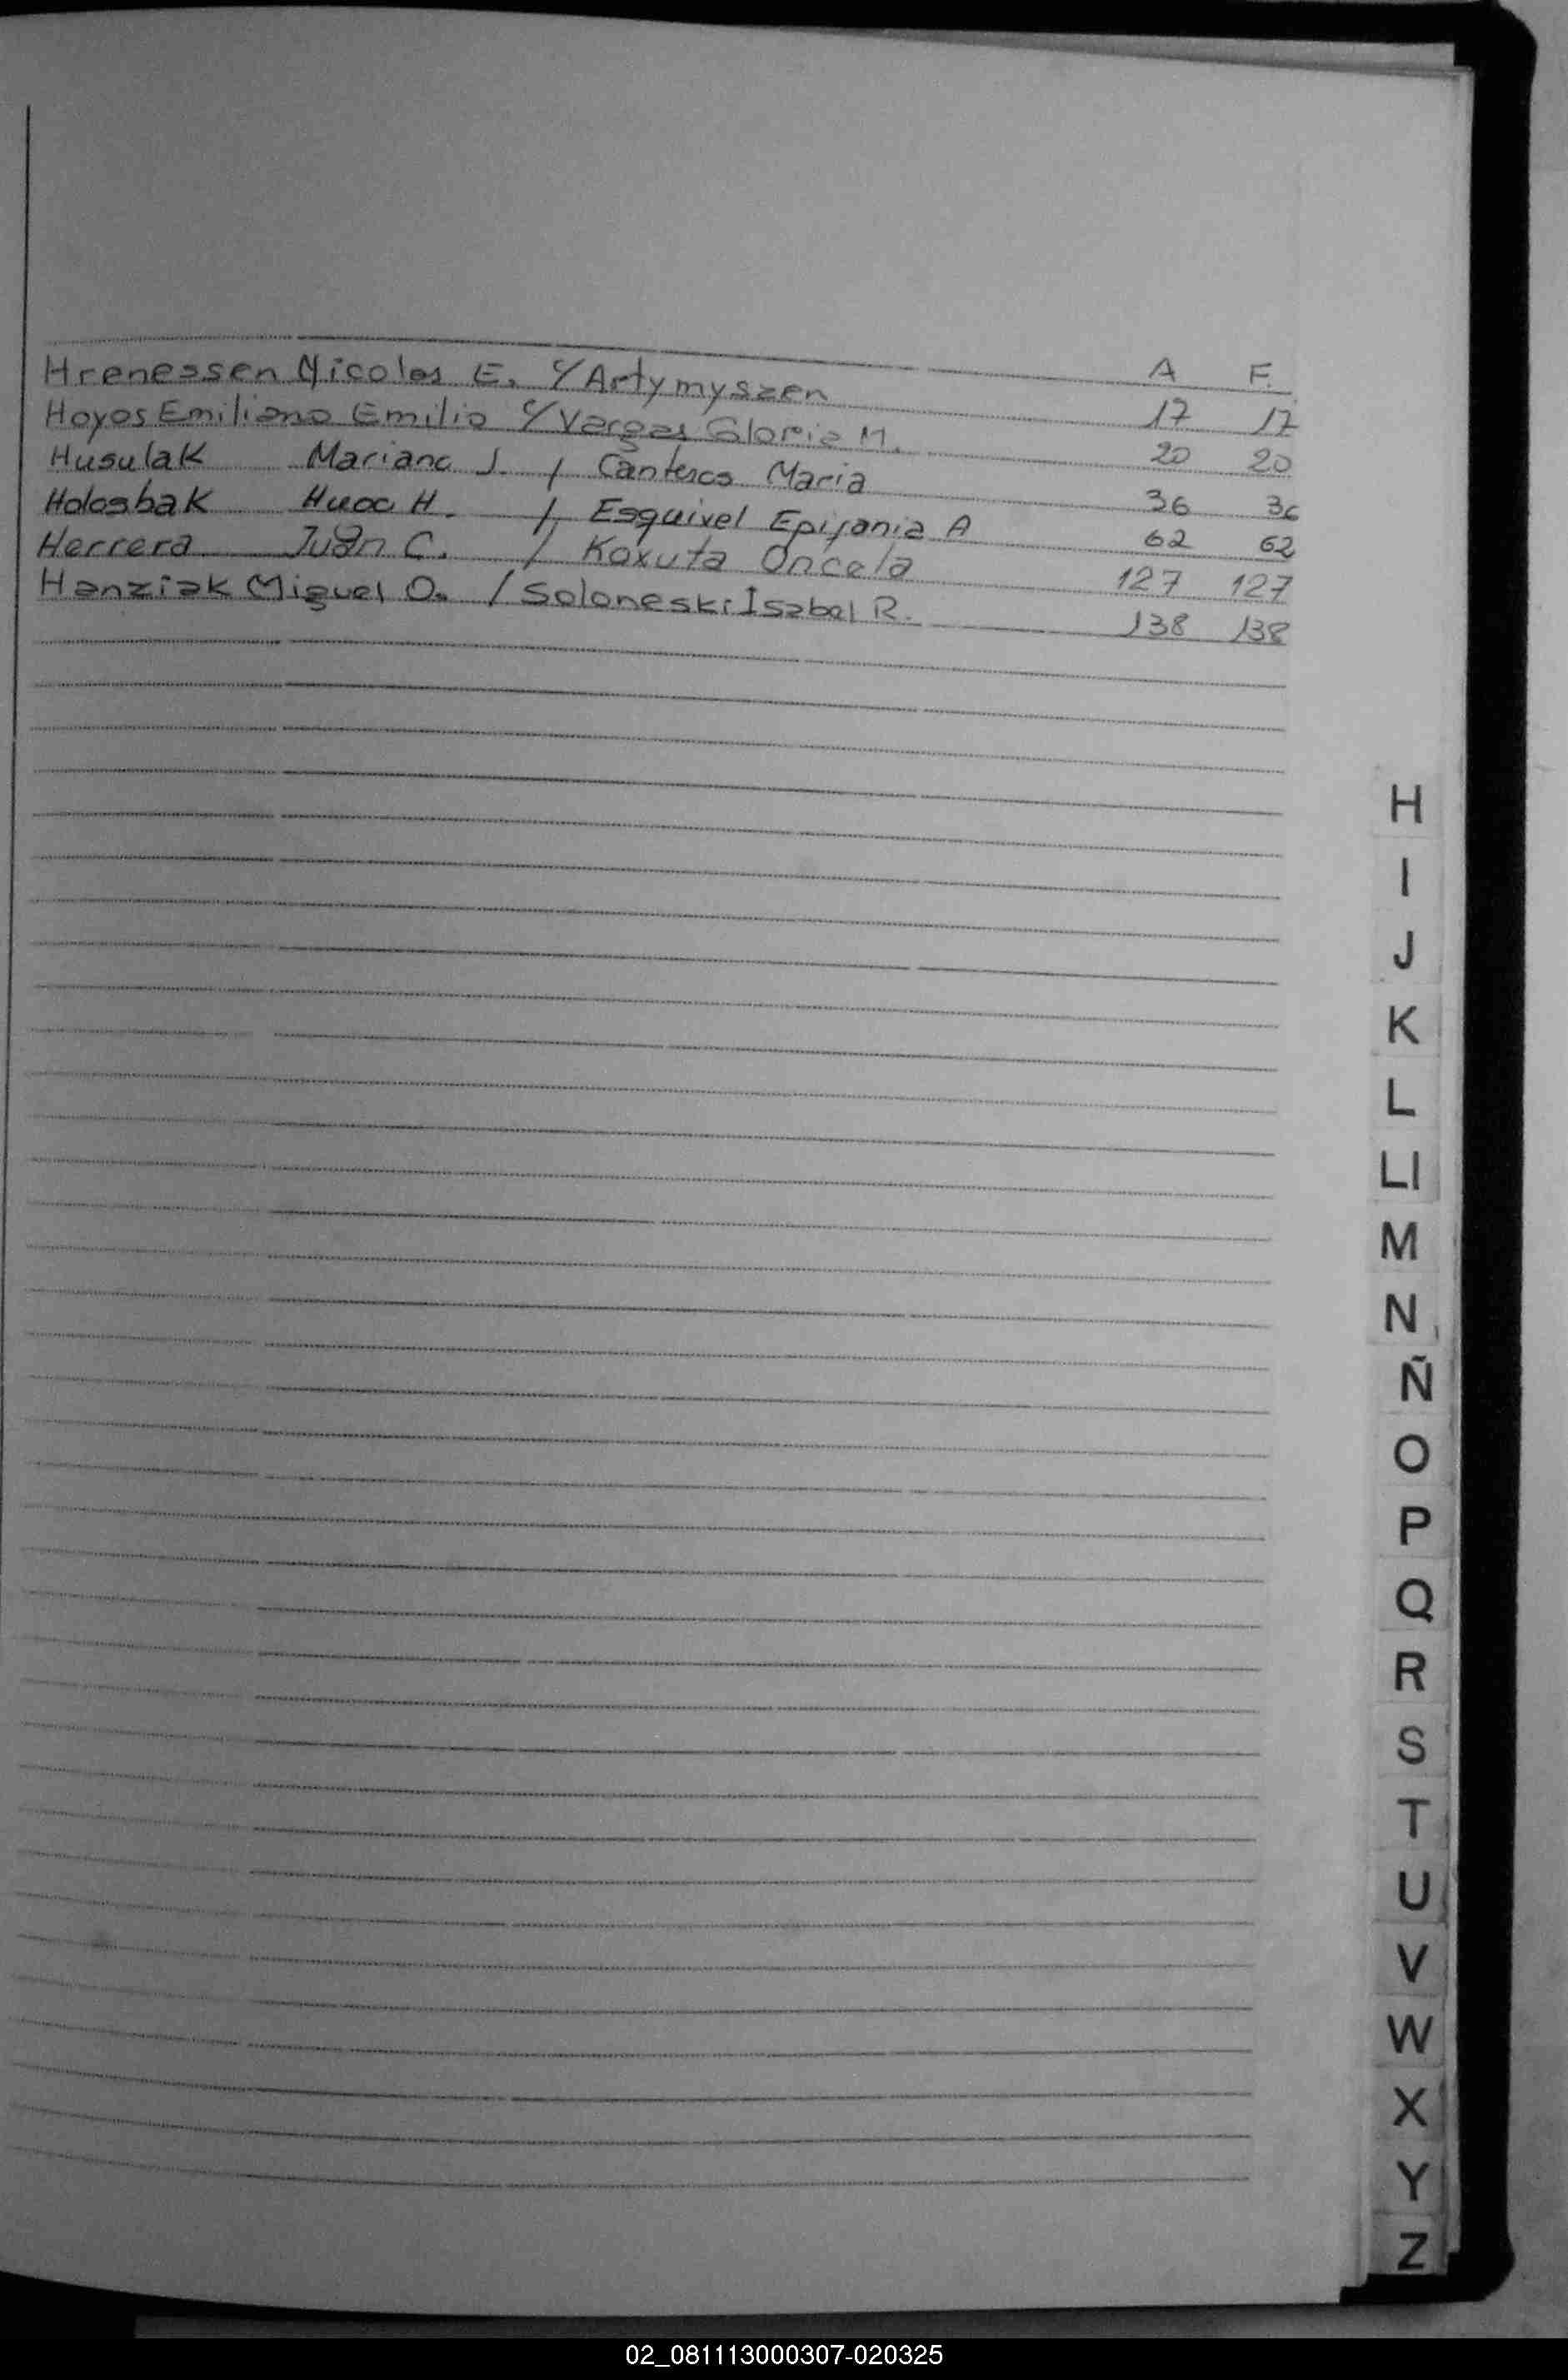 A F.
Hrenessen Nicolas E. c/ Artymyszen 17 17
Hoyos Emiliano Emilio c/ Vargas Gloria M. 20 20
Husulak Mariano J. / Canteros Maria 36 36
Holosbak Hugo H. / Esquivel Epifania A 62 62
Herrera Juan C. / Koxuta Oncela 127 127
Hanziak Miguel O. / Soloneski Isabel R. 138 138
H
I
J
K
L
Ll
M
N
Ñ
O
P
Q
R
S
T
U
V
W
X
Y
Z
02_081113000307-020325